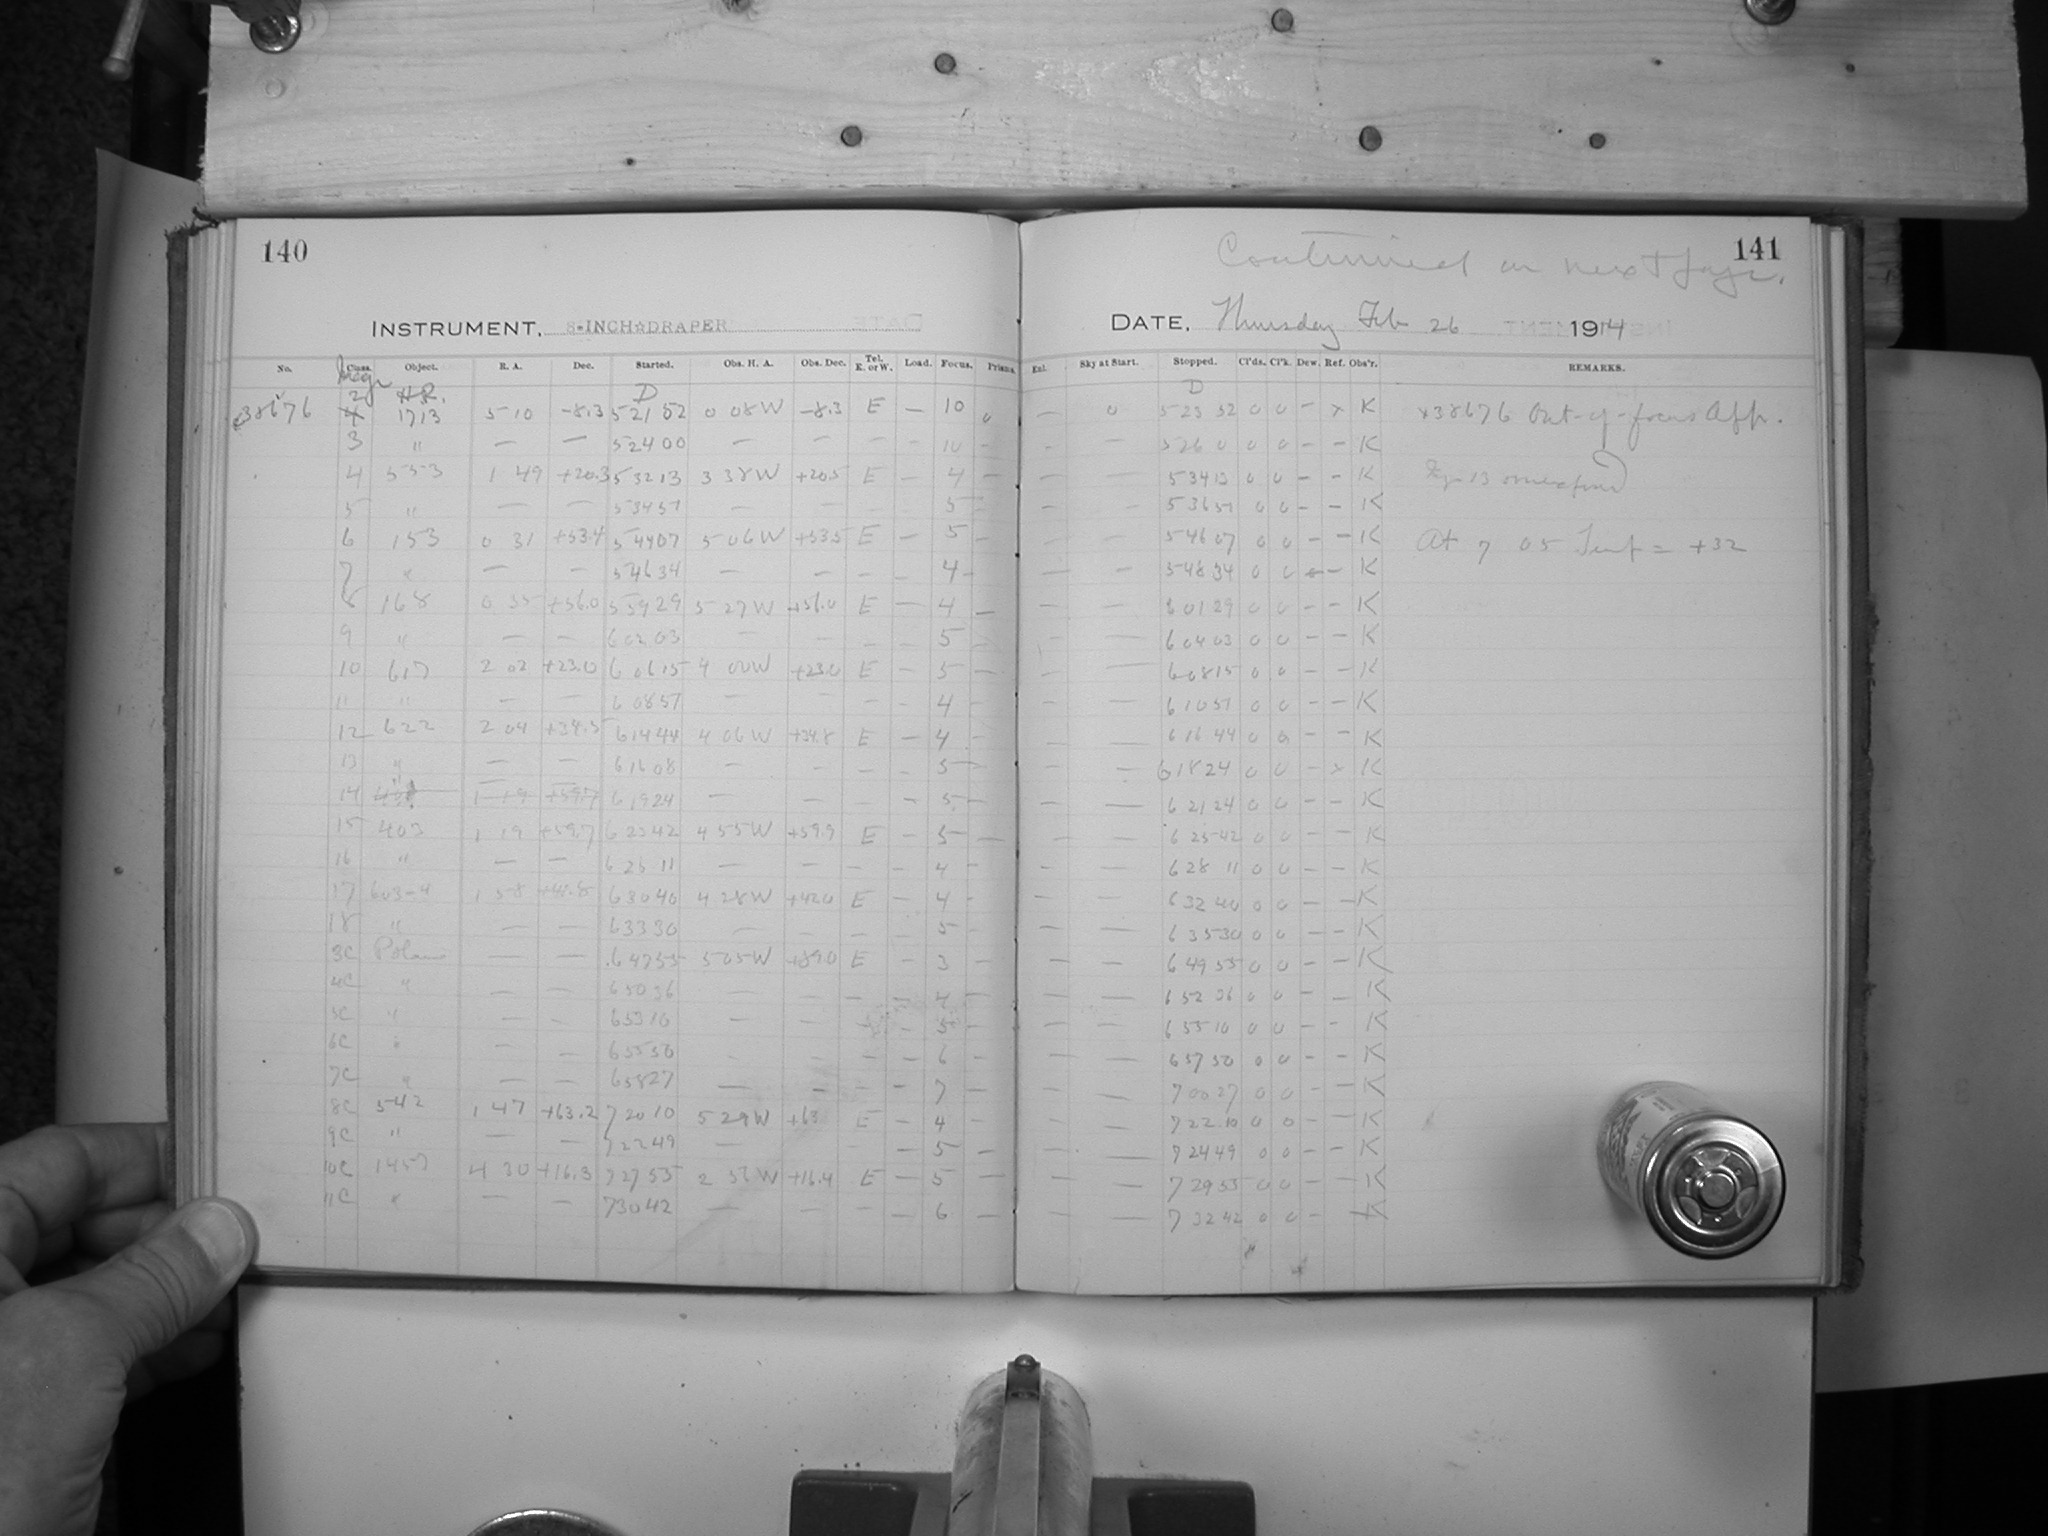 140
INSTRUMENT, 8-INCH☆DRAPER
No. Class. Object. R. A. Dec. Started. Obs. H. A. Obs. Dec. Tel. E. or W. Load. Focus. Prisms.
H.R. D
38676 2 1713 5 10 -8.3 5 21 52 0 08W -8.3 E — 10 0
3 " — — 5 24 00 — — — — 10 —
4 553 1 49 +20.3 5 32 13 3 38W +20.5 E — 4 —
5 " — — 5 34 57 — — — — 5 —
6 153 0 31 +53.4 5 44 07 5 06W +53.5 E — 5 —
7 " — — 5 46 34 — — — — 4 —
8 168 0 35 +56.0 5 59 29 5 27W +56.0 E — 4 —
9 " — — 6 02 03 — — — — 5 —
10 617 2 02 +23.0 6 06 15 4 00W +23.0 E — 5 —
11 " — — 6 08 57 — — — — 4 —
12 622 2 04 +34.5 6 14 44 4 06W +34.8 E — 4 —
13 " — — 6 16 08 — — — — 5 —
14 " 1 19 +59.7 6 19 24 — — — 5 —
15 403 1 19 +59.7 6 23 42 4 55W +59.9 E — 5 —
16 " — — 6 26 11 — — — — 4 —
17 603-4 1 58 +41.8 6 30 40 4 28W +42.0 E — 4 —
18 " — — 6 33 30 — — — — 5 —
3C Polaris — — 6 47 55 5 05W +89.0 E — 3 —
4C " — — 6 50 36 — — — — 4 —
5C " — — 6 53 10 — — — — 5 —
6C " — — 6 55 50 — — — — 6 —
7C " — — 6 58 27 — — — — 7 —
8C 542 1 47 +63.2 7 20 10 5 29W +63 E — 4 —
9C " — — 7 22 49 — — 5 —
10C 1457 4 30 +16.3 7 27 53 2 56W +16.4 E — 5 —
11C " — — 7 30 42 — — — — 6 —
141
Continued on next page.
DATE, Thursday Feb 26 1914
Exl. Sky at Start. Stopped. Cl'ds. Cl'k. Dew. Ref. Obs'r. REMARKS.
D
— 0 5 23 52 0 0 — x K x38676 Out-of-focus App.
— — 5 26 0 0 0 — — K
— — 5 34 13 0 0 — — K
— — 5 36 57 0 0 — — K
— — 5 46 07 0 0 — — K At 7 05 Temp = +32
— — 5 48 34 0 0 — — K
— — 6 01 29 0 0 — — K
— — 6 04 03 0 0 — — K
— — 6 08 15 0 0 — — K
— — 6 10 57 0 0 — — K
— — 6 16 44 0 0 — — K
— — 6 18 24 0 0 — x K
— — 6 21 24 0 0 — — K
— — 6 25 42 0 0 — — K
— — 6 28 11 0 0 — — K
— — 6 32 40 0 0 — — K
— — 6 35 30 0 0 — — K
— — 6 49 55 0 0 — — K
— — 6 52 36 0 0 — — K
— — 6 55 10 0 0 — — K
— — 6 57 50 0 0 — — K
— — 7 00 27 0 0 — — K
— — 7 22 10 0 0 — — K
— — 7 24 49 0 0 — — K
— — 7 29 53 0 0 — — K
— — 7 32 42 0 0 — — K